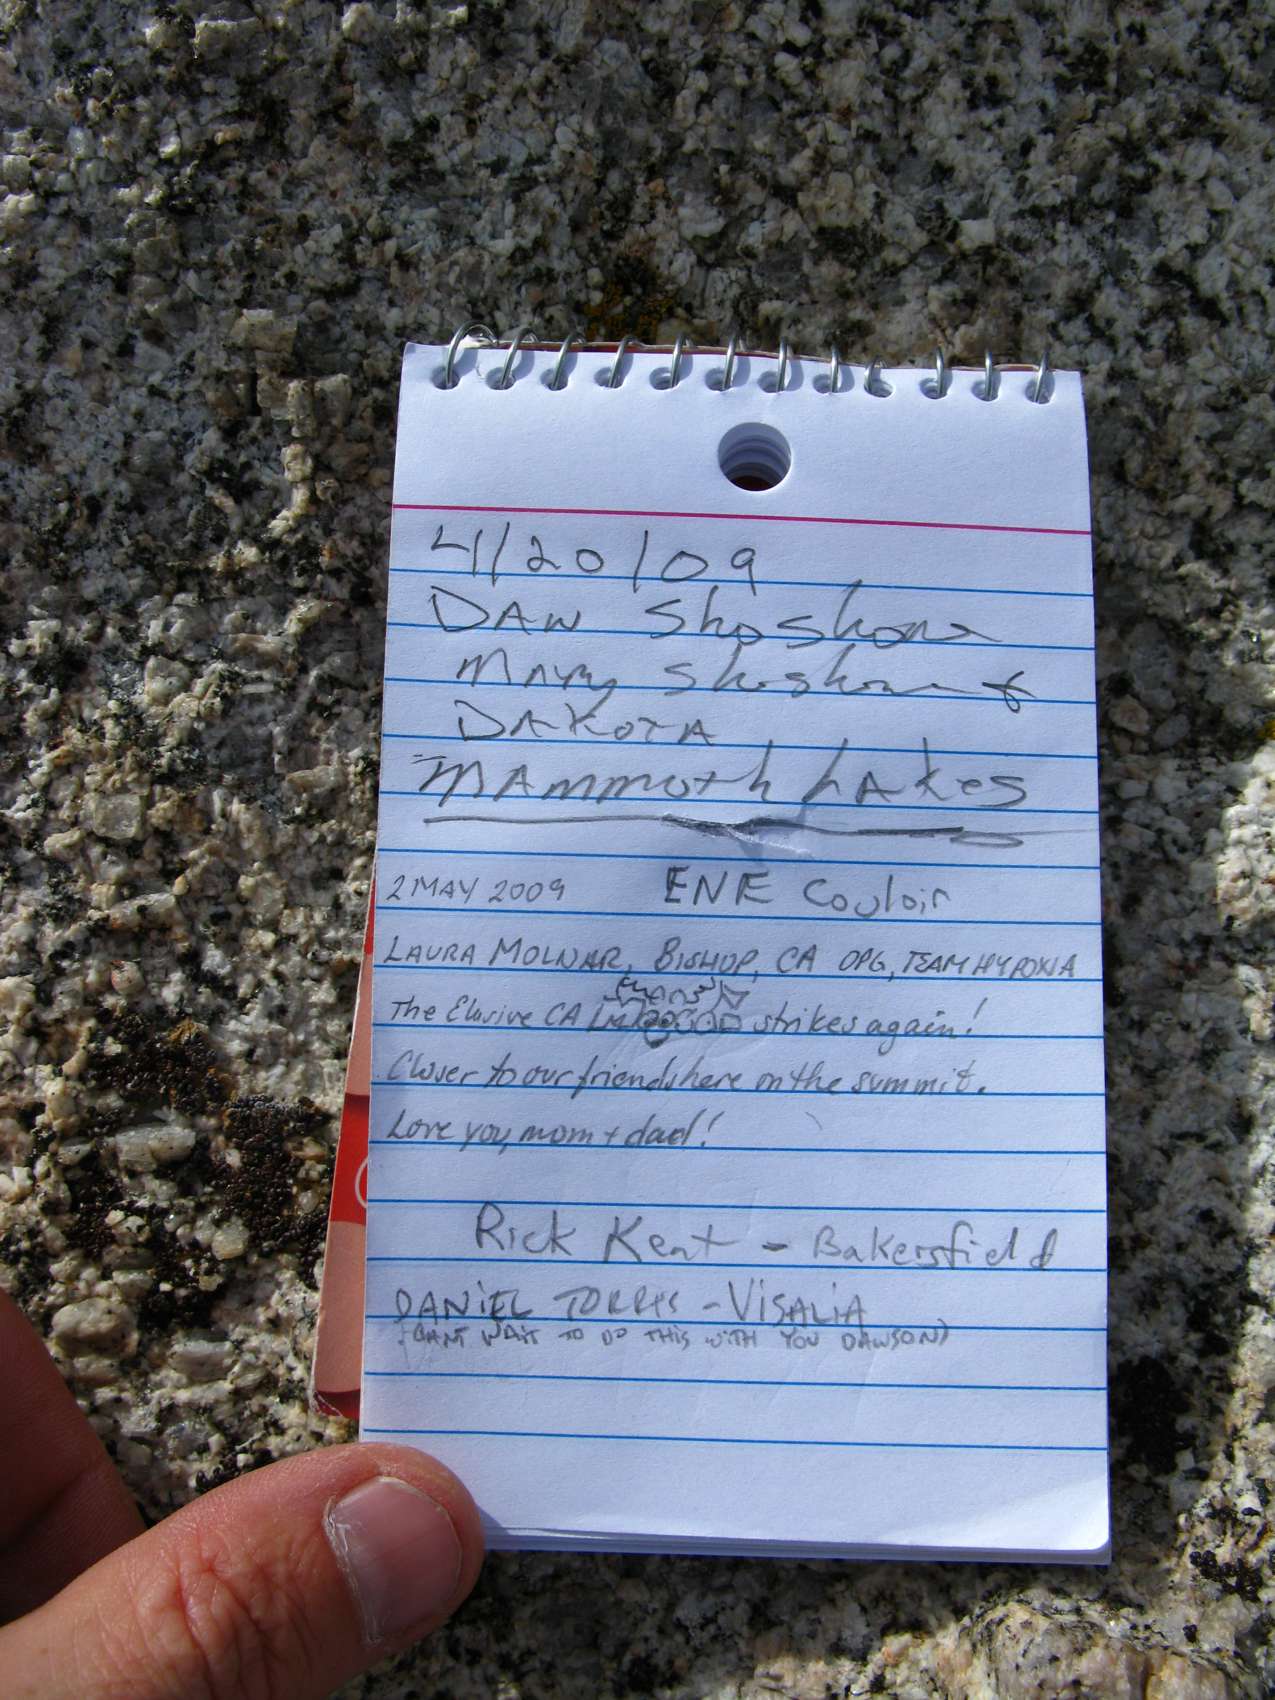 4/20/09
DAW Shoshone
Mary Shoshone &
DAKOTA
MAmmoth LAKes
2 MAY 2009 ENE Couloir
LAURA MOLNAR, BISHOP, CA OPG, TEAM HYPOXIA
The Elusive CA strikes again!
Closer to our friends here on the summit.
Love you, mom + dad!
Rick Kent - Bakersfield
DANiEL TORRES - ViSALiA
(CANT WAiT TO DO THiS WiTH YOU DAWSON)